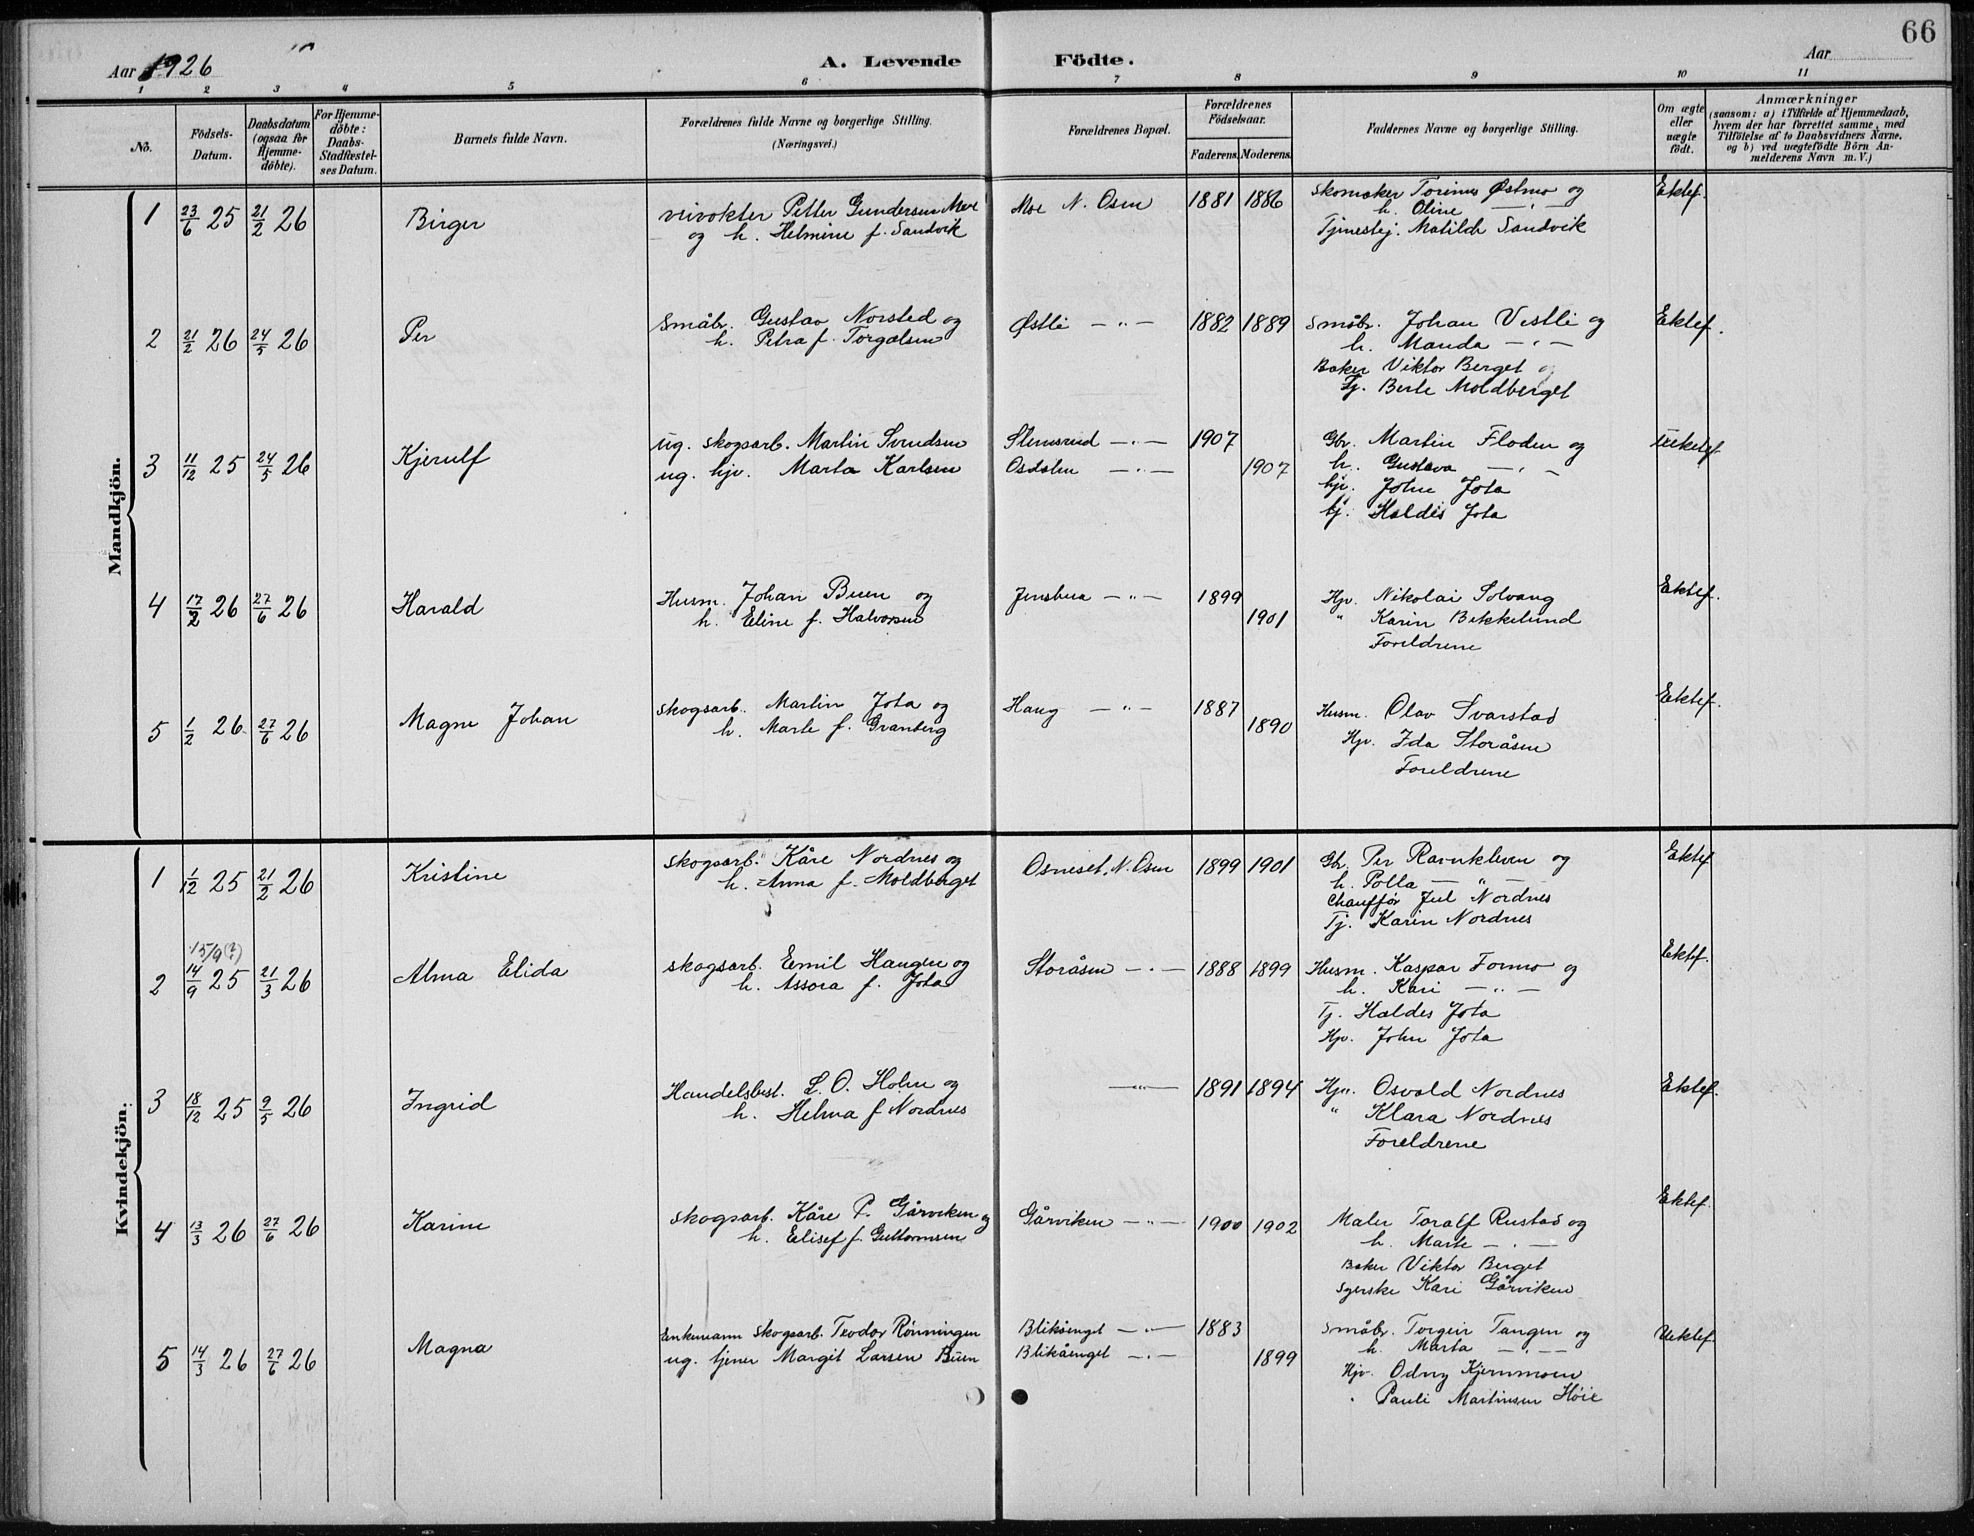 66
Aar 1926
A. Levende Födte.
Aar
1 2 3 4 5 6 7 8 9 10 11
No.
Födsels-
Datum.
Daabsdatum
(ogsaa for
Hjemme-
döbte).
For Hjemme-
döbte:
Daabs-
Stadfæstel-
ses Datum.
Barnets fulde Navn.
Forældrenes fulde Navne og borgerlige Stilling.
(Næringsvei.)
Forældrenes Bopæl.
Forældrenes
Födselsaar.
Faderens. Moderens.
Faddernes Navne og borgerlige Stilling.
Om ægte
eller
uægte
født.
Anmærkninger
(saasom: a) i Tilfælde af Hjemmedaab,
hvem der har forrettet samme, med
Tilföielse af to Daabsvidners Navne,
og b) ved uægtefödte Börn An-
melderens Navn m. V.)
Mandkjön.
1 23/6 25 21/2 26 Birger
veivokter Petter Gundersen Moe
og h. Helmine f. Sandvik
Moe N. Osen 1881 1886
Skomaker Torinus Østmo og
h. Oline — " —
Tjenestej. Matilde Sandvik
Ektef.
2 21/2 26 24/5 26 Per
Småbr. Gustav Norsted og
h. Petra f. Torgalsen
Østli — " — 1882 1889
Småbr. Johan Vestli og
h. Manda — " —
Baker Viktor Berget og
Tj. Berte Moldberget
Ektef.
3 11/12 25 24/5 26 Kjerulf
ug. skogsarb. Martin Svendsen
ug. hjv. Marta Karlsen
Stensrud — " — 1907
Osdalen — " — 1907
Gbr. Martin Floden og
h. Gustava — " —
hjv. John Jota
tj. Haldis Jota
4 17/2 26 27/6 26 Harald
Husm. Johan Buen og
h. Eline f. Halvorsen
Jensbua — " — 1899
1901
Hjv. Nikolai Solvang
" Karin Bekkelund
Foreldrene
Ektef.
5 1/2 26 27/6 26 Magne Johan
skogsarb. Martin Jota og
h. Marte f. Granberg
Haug — " — 1887
1890
Husm. Olav Svarstad
Hjv. Ida Storåsen
Foreldrene
Ektef.
Kvindekjön.
1 1/12 25 21/2 26 Kristine
skogsarb. Kåre Nordnes og
h. Anna f. Moldberget
Osneset, N. Osen 1899 1901
Gbr. Per Ravnkleven og
h. Polla — " —
Chauffør Jul Nordnes
Tj. Karin Nordnes
Ektef.
15/9(?)
2 14/9 25 21/3 26 Alma Elida
skogsarb. Emil Haugen og
h. Assora f. Jota
Storåsen — " — 1888 1899
Husm. Kaspar Formo og
h. Kari — " —
Tj. Haldes Jota
Hjv. John Jota
Ektef.
3 18/12 25 9/5 26 Ingrid
Handelsbest. L. O. Holm og
h. Helma f Nordnes
— " — 1891 1894
Hjv. Osvald Nordnes
" Klara Nordnes
Foreldrene
Ektef.
4 13/3 26 27/6 26 Karine
skogsarb. Kåre P. Gårviken og
h. Elisef f. Guttormsen
Gårviken — " — 1900 1902
Maler Toralf Rustad og
h. Marte — " —
Baker Viktor Berget
Syerske Kari Gårviken
Ektef.
5 14/3 26 27/6 26 Magna
Enkemann skogsarb. Teodor Rønningen
ug. tjener Margit Larsen Buen
Blikåenget — " — 1883
Blikåenget — " — 1899
Småbr. Torgeir Tangen og
h. Marta — " —
Hjv. Odny Kjernmoen
" Pauli Martinsen Høie
Uektef.